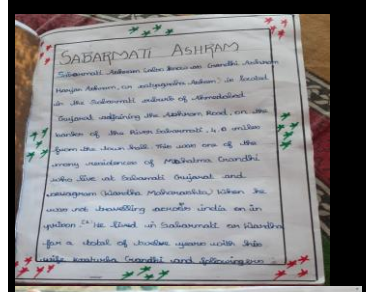 SABARMATI ASHRAM
Sabarmati Ashram (also known as Gandhi Ashram
Harijan Ashram, or satyagraha Ashram) is located
in the Sabarmati suburb of Ahmedabad
Gujarat adjoining the Ashram Road, on the
banks of the River Sabarmati, 4.0 miles
from the town hall. This was one of the
many residences of Mahatma Gandhi
who live at Sabarmati Gujarat and
sevagram (Wardha Maharashtra) when he
was not travelling across india or in
prison. He lived in Sabarmati or Wardha
for a total of twelve years with his
wife kasturba Gandhi and followers